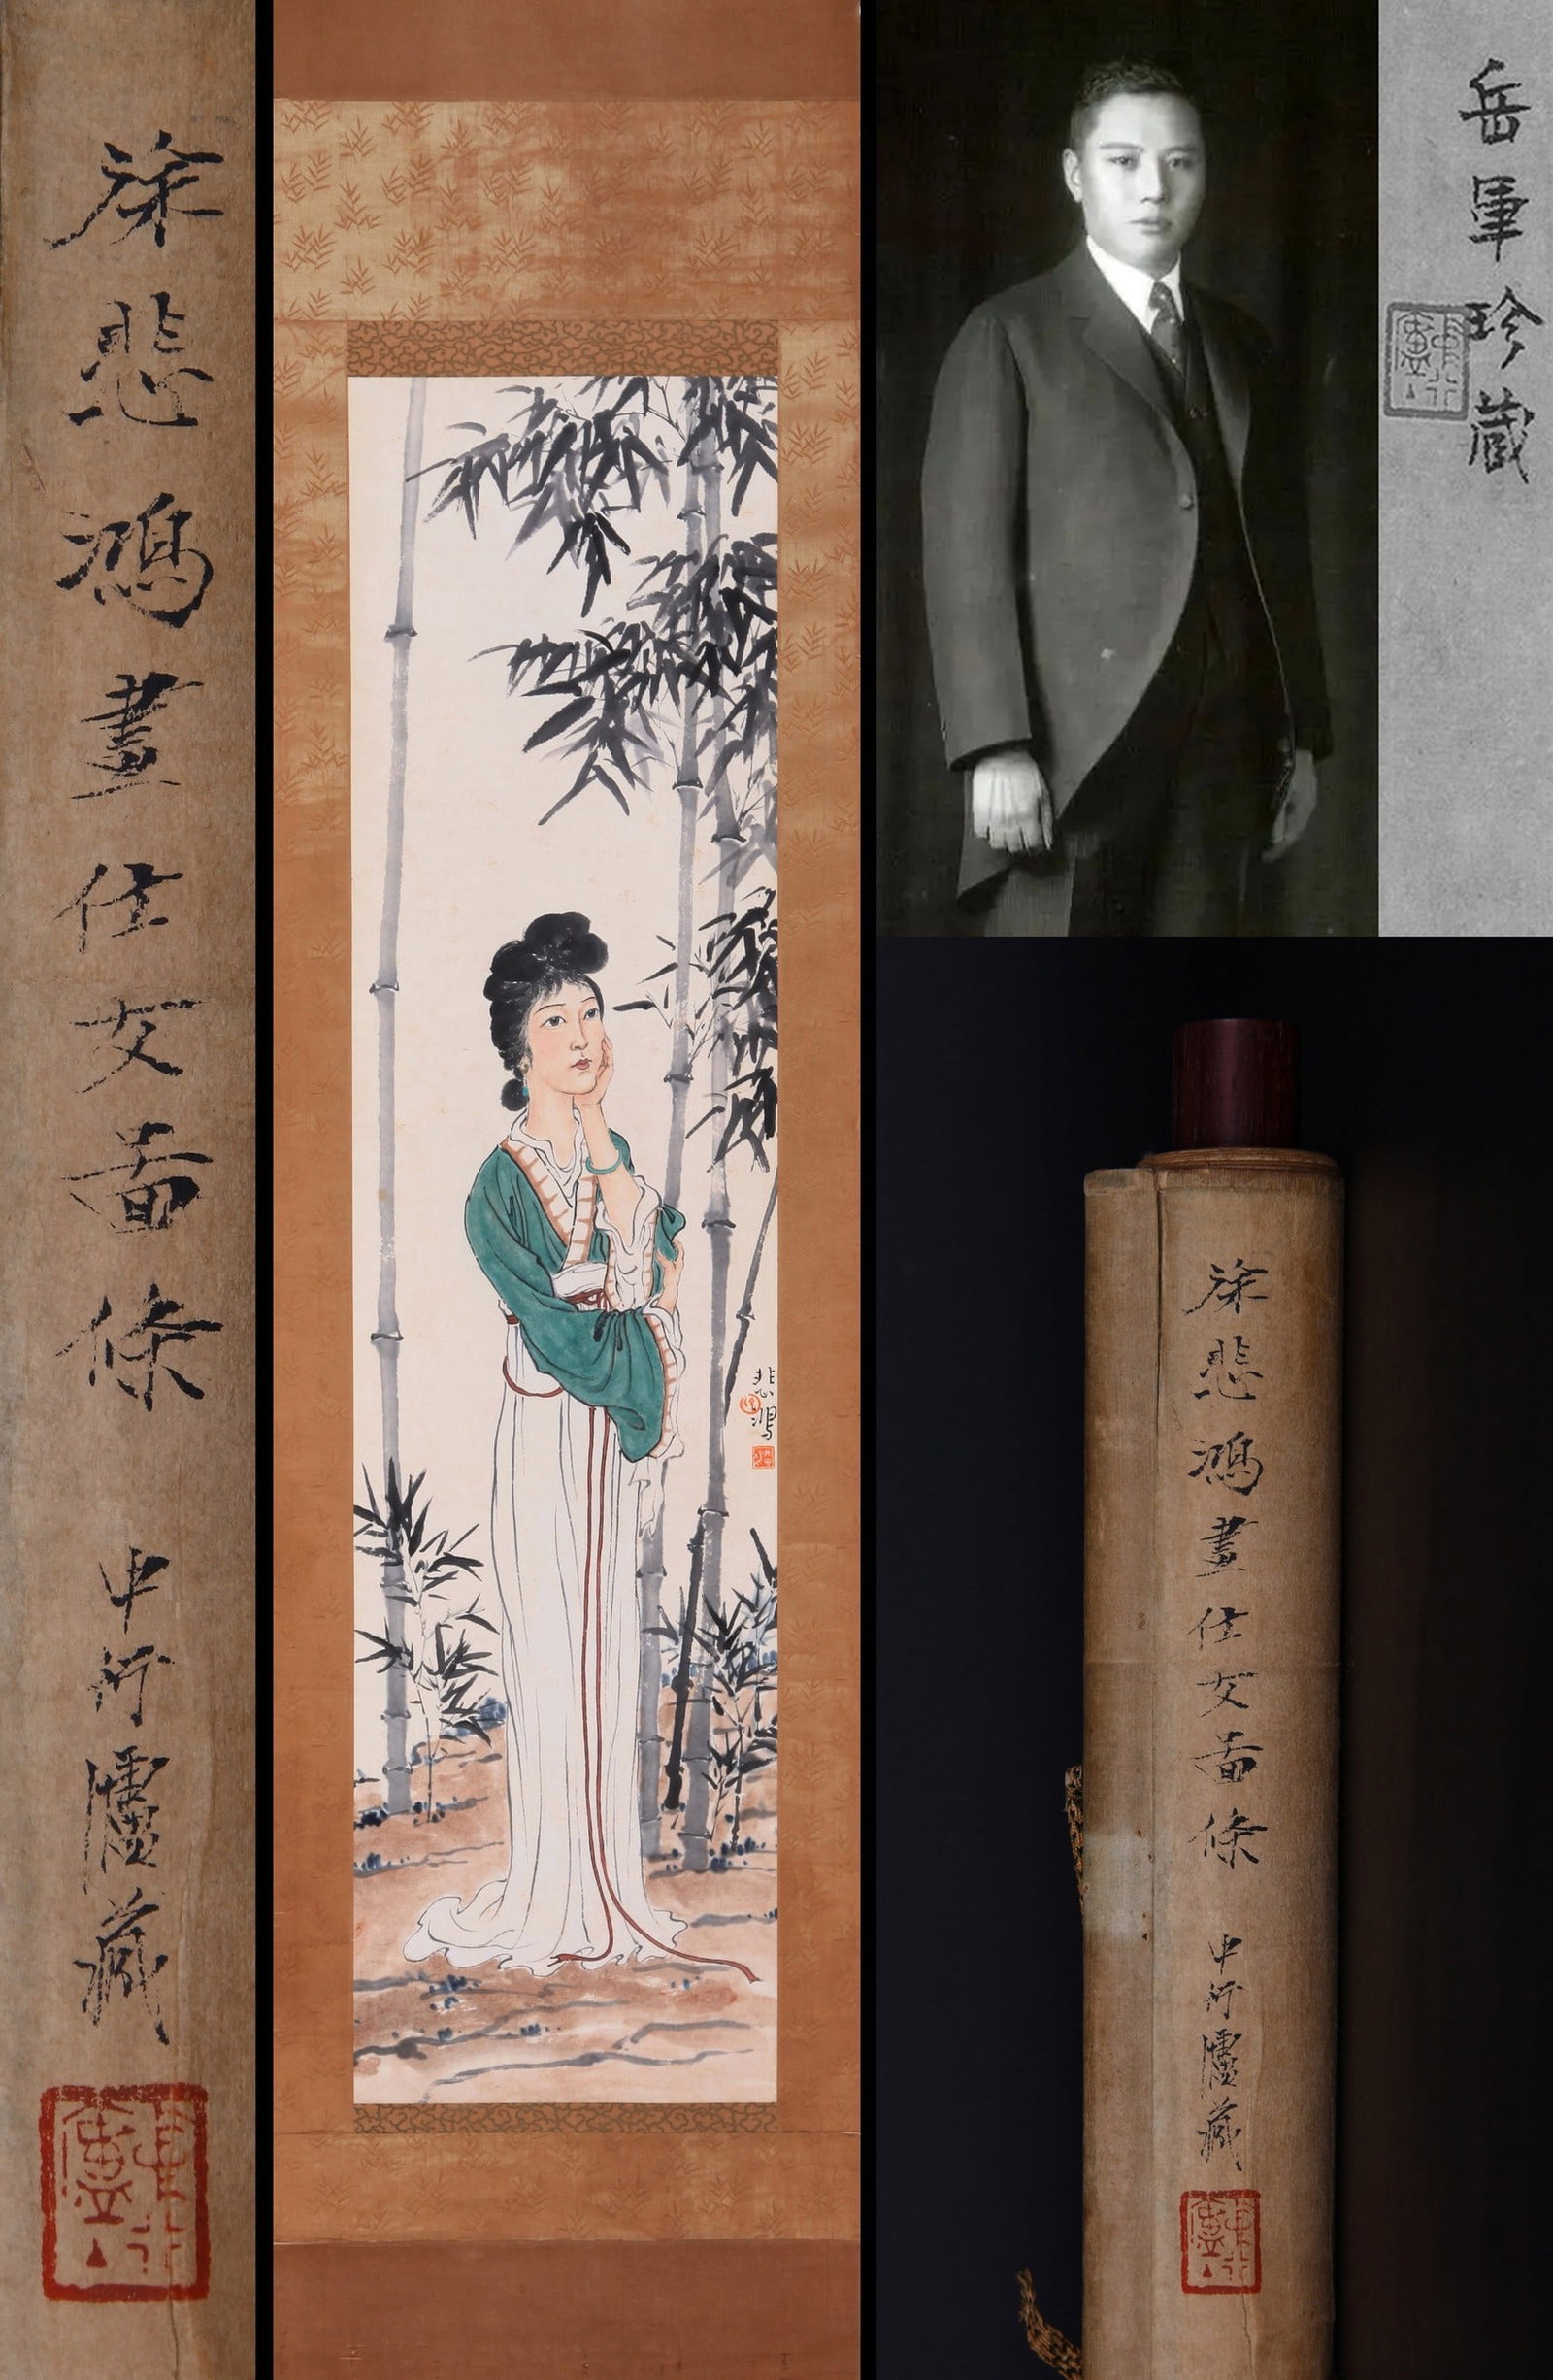 徐悲鴻畫仕女啚條
中行廬藏
悲鴻
岳軍珍藏
徐悲鴻畫仕女啚條
中行廬藏